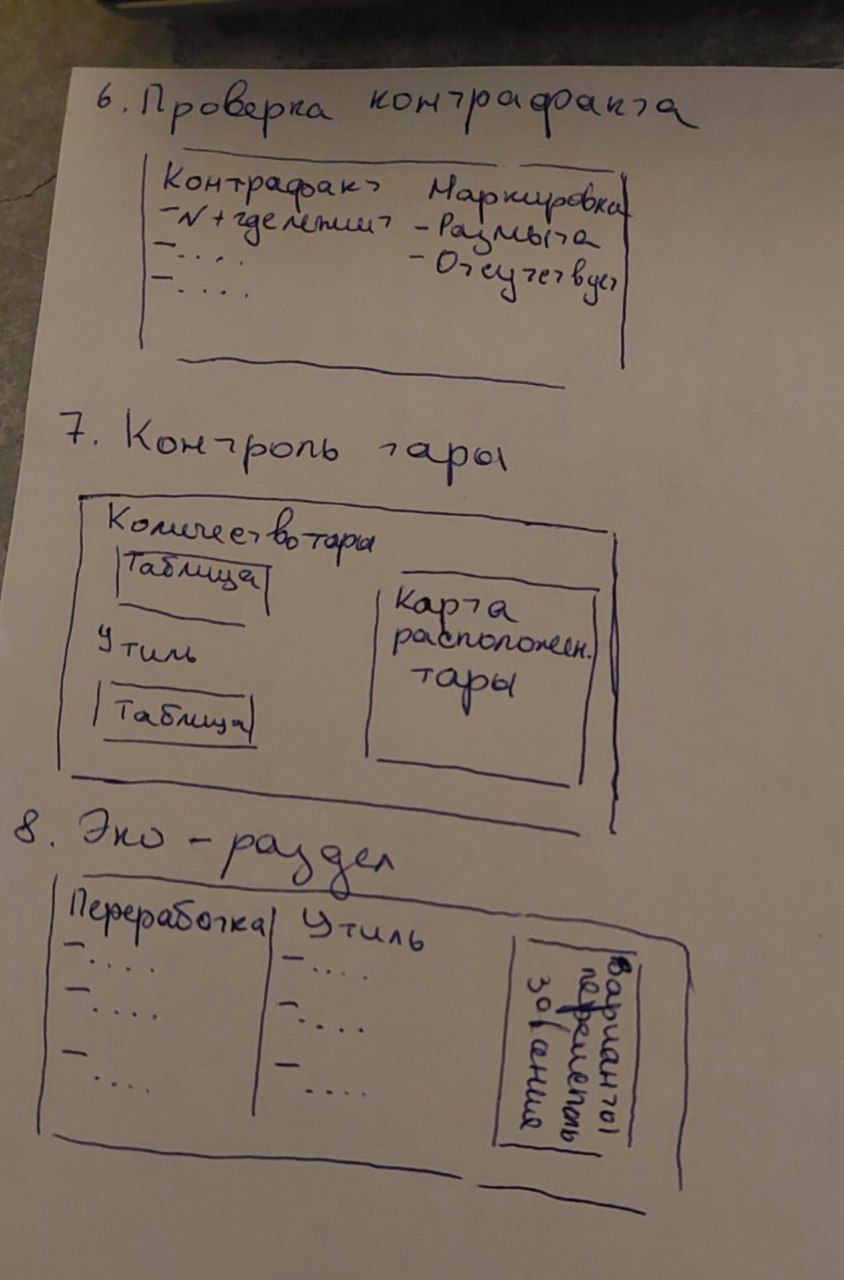 6. Проверка контрафакта
Контрафакт
- N + где лежит
- ....
- ....
Маркировка
- Размыта
- Отсутствует
7. Контроль тары
Количество тары
Таблица
Утиль
Таблица
Карта
расположен.
тары
8. Эко - раздел
Переработка
- ....
- ....
- ....
Утиль
- ....
- ....
- ....
Варианты
переисполь
зования